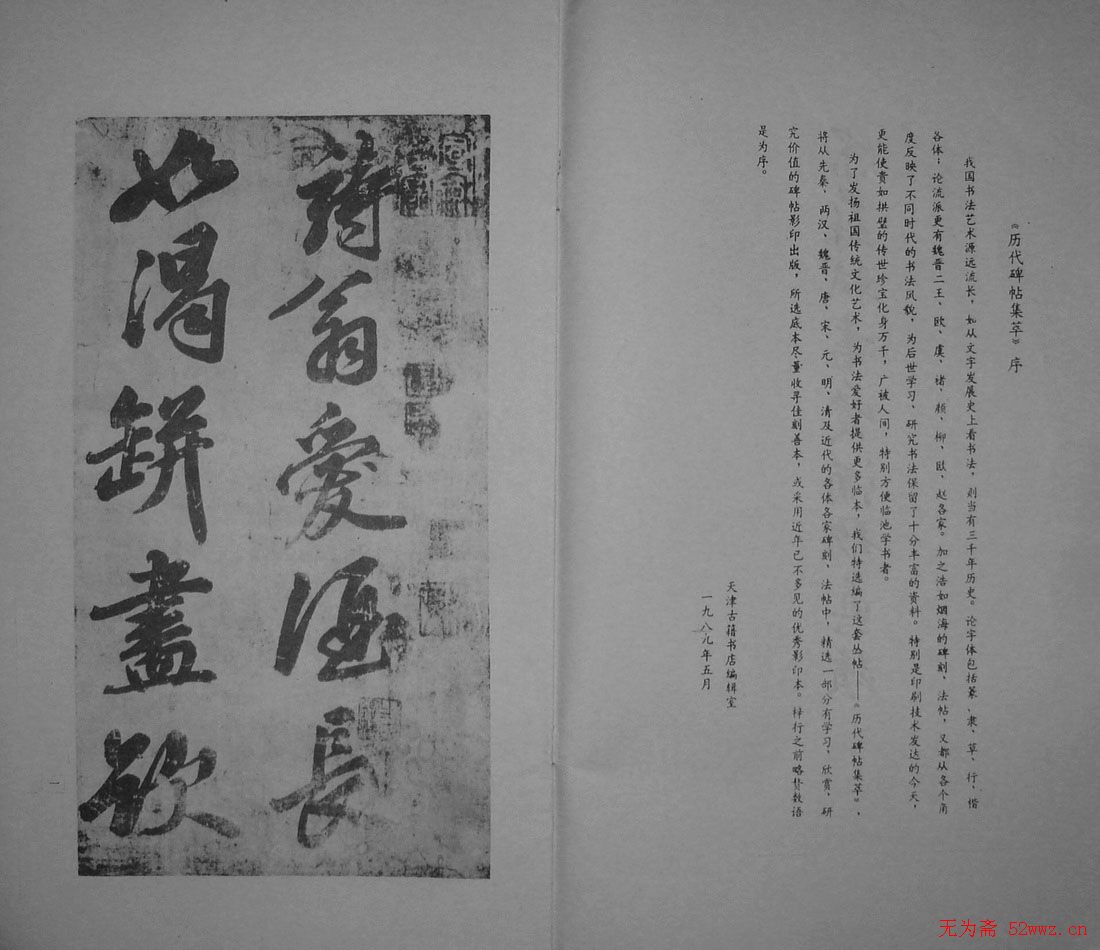 《历代碑帖集萃》序
我国书法艺术源远流长，如从文字发展史上看书法，则当有三千年历史。论字体包括篆、隶、草、行、楷
各体；论流派更有魏晋二王、欧、虞、褚、颜、柳、欧、赵各家。加之浩如烟海的碑刻、法帖，又都从各个角
度反映了不同时代的书法风貌，为后世学习、研究书法保留了十分丰富的资料。特别是印刷技术发达的今天，
更能使贵如拱璧的传世珍宝化身万千，广被人间，特别方便临池学书者。
为了发扬祖国传统文化艺术，为书法爱好者提供更多临本，我们特选编了这套丛帖——《历代碑帖集萃》，
将从先秦、两汉、魏晋、唐、宋、元、明、清及近代的各体各家碑刻、法帖中，精选一部分有学习、欣赏、研
究价值的碑帖影印出版，所选底本尽量收寻佳刻善本，或采用近年已不多见的优秀影印本。梓行之前略赘数语
是为序。
天津古籍书店编辑室
一九八九年五月
诗翁爱酒長
如渴缾盡欲
一
无为斋 52wwz.cn